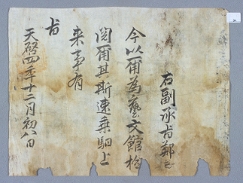 右副承旨鄭
今以爾爲藝文館檢
閱爾其斯速乘馹上
來事有
旨
天啓四年十二月初八日